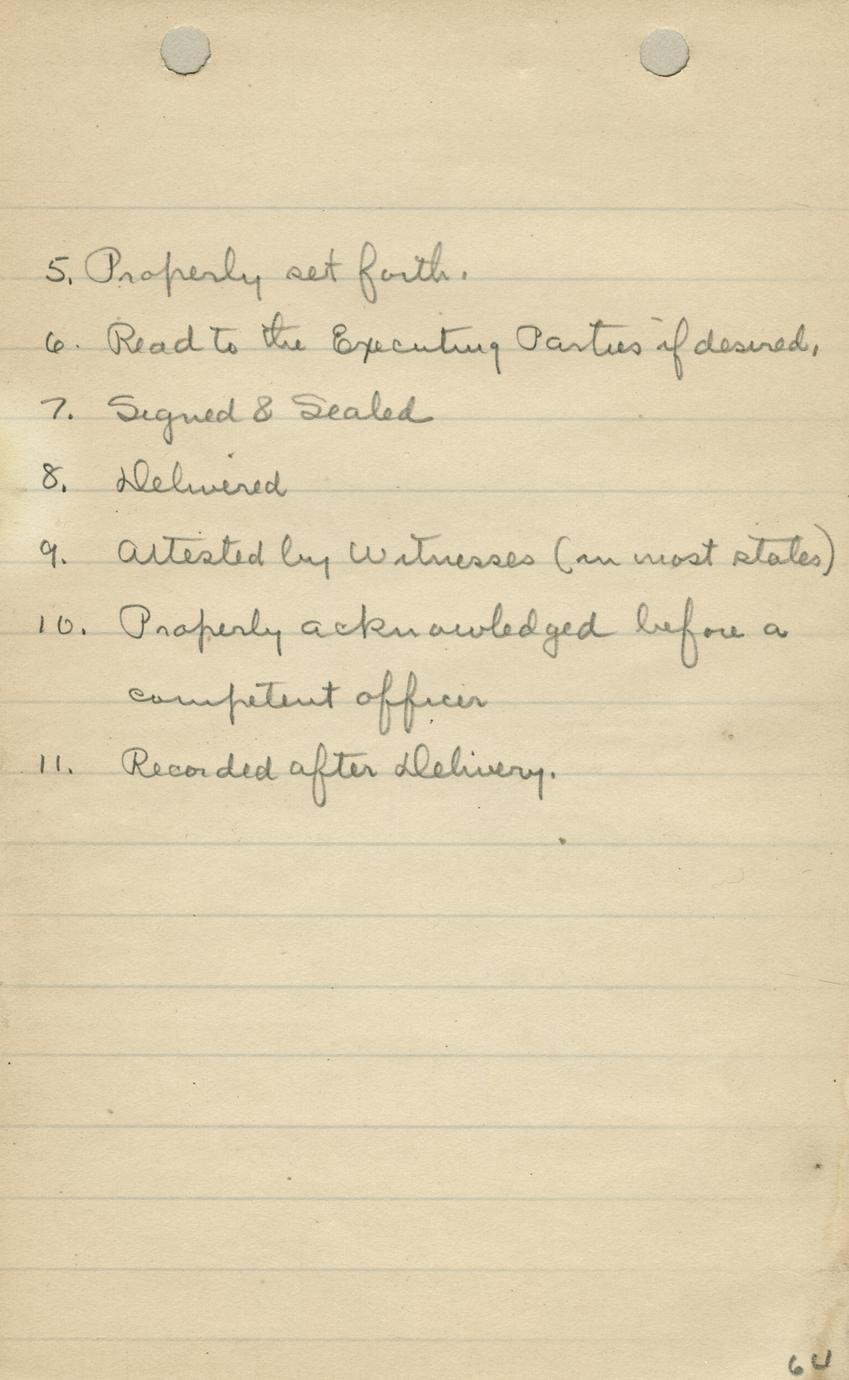 5. Properly set forth.
6. Read to the Executing Parties if desired.
7. Signed & Sealed
8. Delivered
9. Attested by Witnesses (in most states)
10. Properly acknowledged before a
competent officer
11. Recorded after Delivery.
64